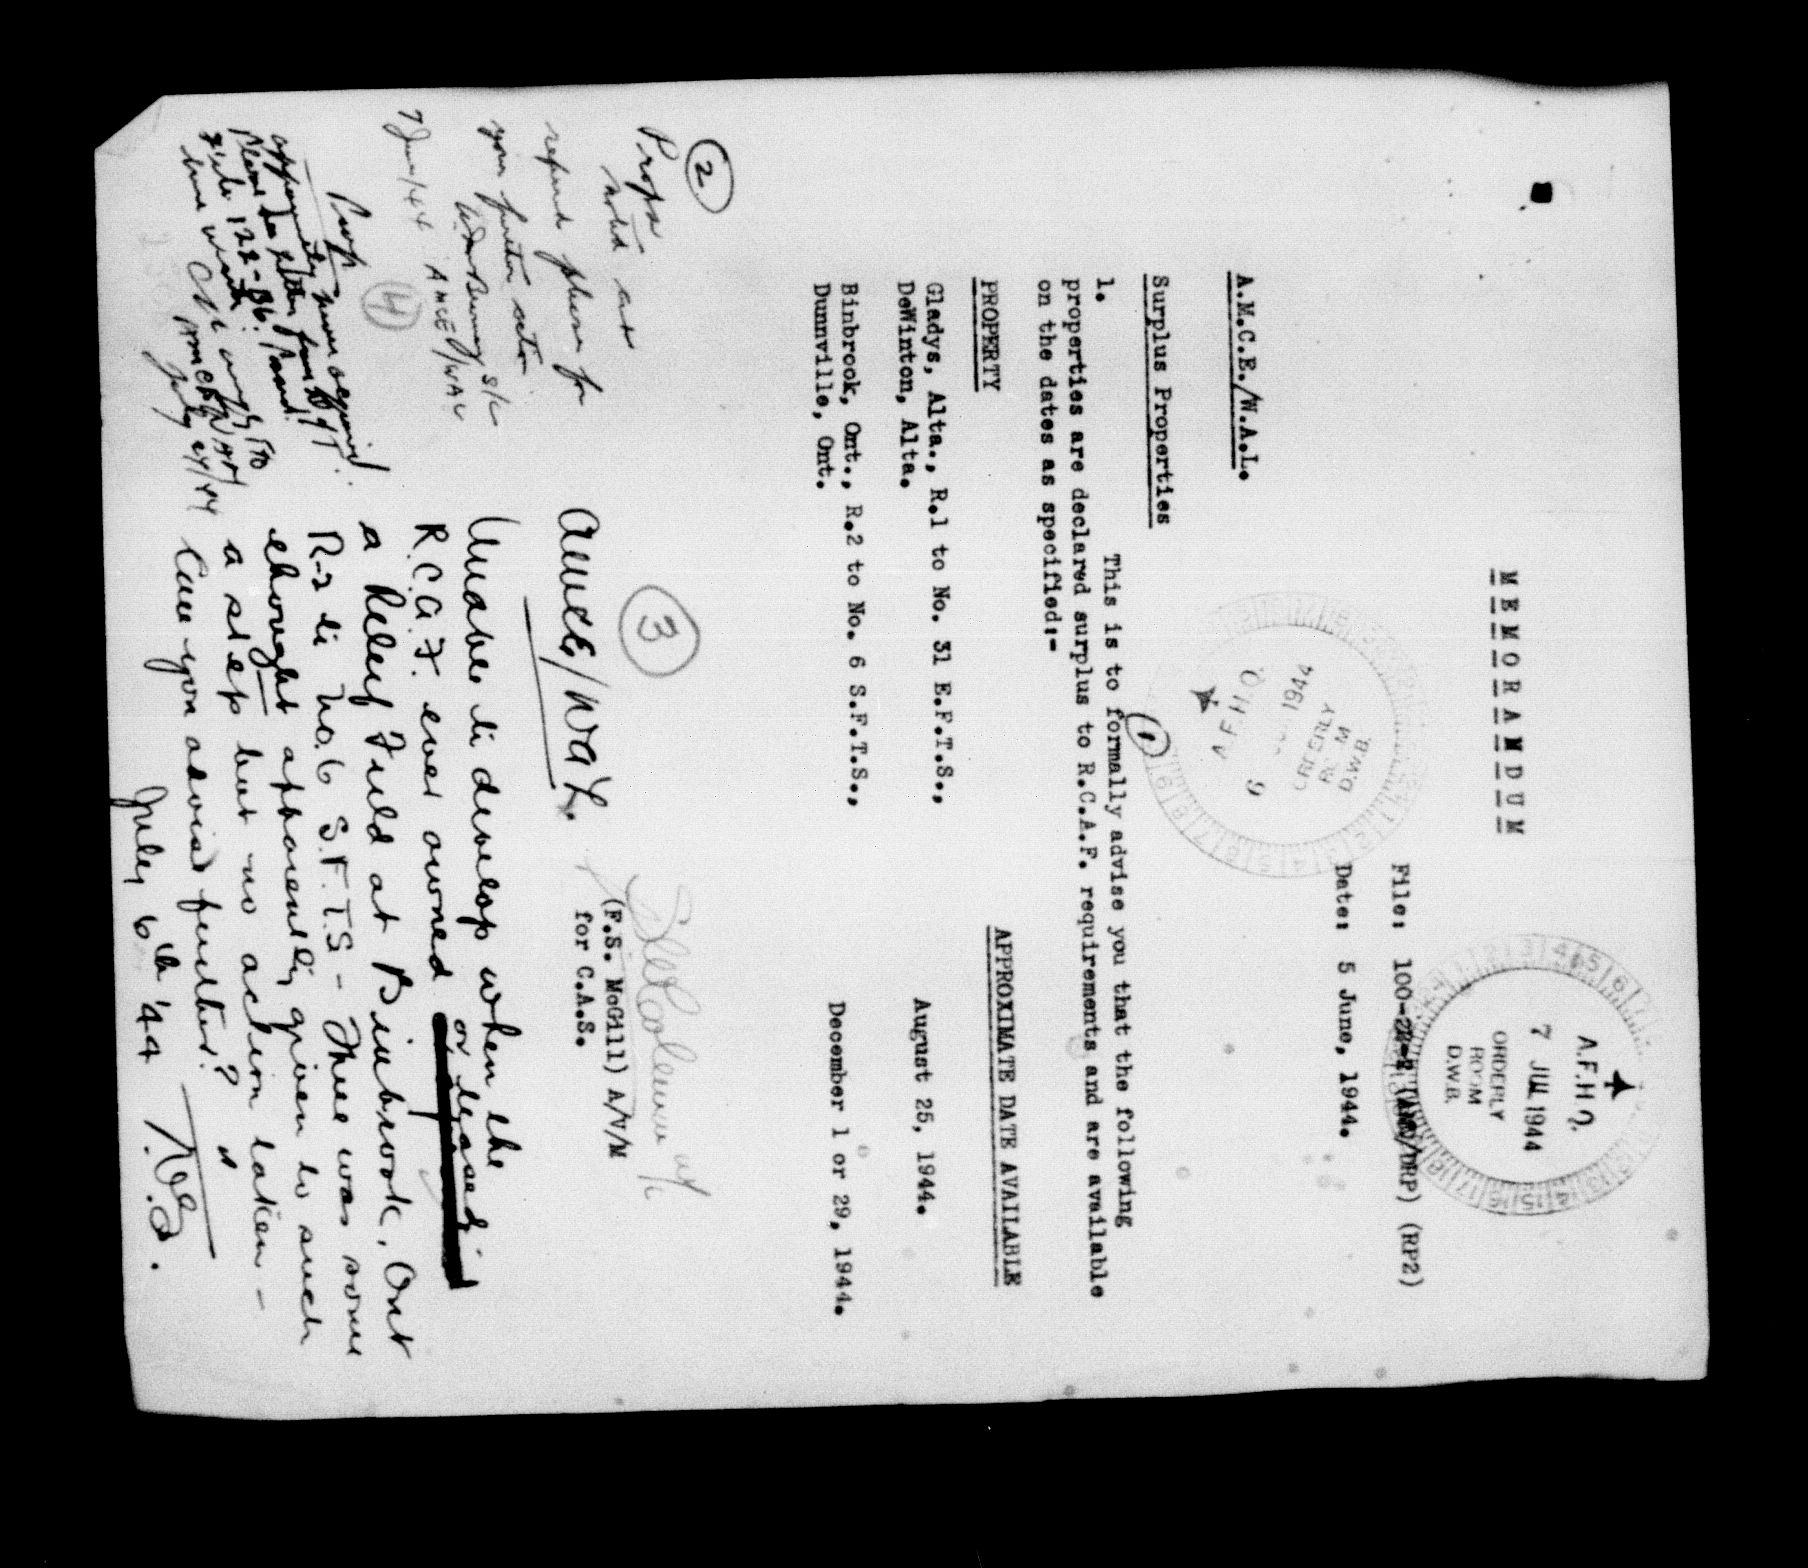 MEMORANDUM
File: 100-22-1 (AMS/DRP) (RP2)
Date: 5 June, 1944.
A.F.H.Q.
7 JUL 1944
ORDERLY
ROOM
D.W.B.
A.F.H.Q.
6 1944
ORDERLY
ROOM
D.W.B.
A.M.C.E./W.A.L.
Surplus Properties
(1)
1. This is to formally advise you that the following
properties are declared surplus to R.C.A.F. requirements and are available
on the dates as specified:-
PROPERTY APPROXIMATE DATE AVAILABLE
Gladys, Alta., R.1 to No. 31 E.F.T.S.,
DeWinton, Alta. August 25, 1944.
Binbrook, Ont., R.2 to No. 6 S.F.T.S.,
Dunnville, Ont. December 1 or 29, 1944.
(F.S. McGill) A/V/M
for C.A.S.
2
Props
Noted and
refered please for
your further action
S/L
AMCE/WAL
7 June/44
3
AMCE/WAL.
Unable to develop when the
R.C.A.F. ever owned or leased
a Relief Field at Binbrook, Ont
R-2 to No. 6 S.F.T.S - There was some
thought apparently given to such
a step but no action taken -
Can you advise further?
July 6th '44
4
Prop
apparently never acquired.
Please see letter from D of T
file 122-B6.
AMCE/WAL
July 24/44